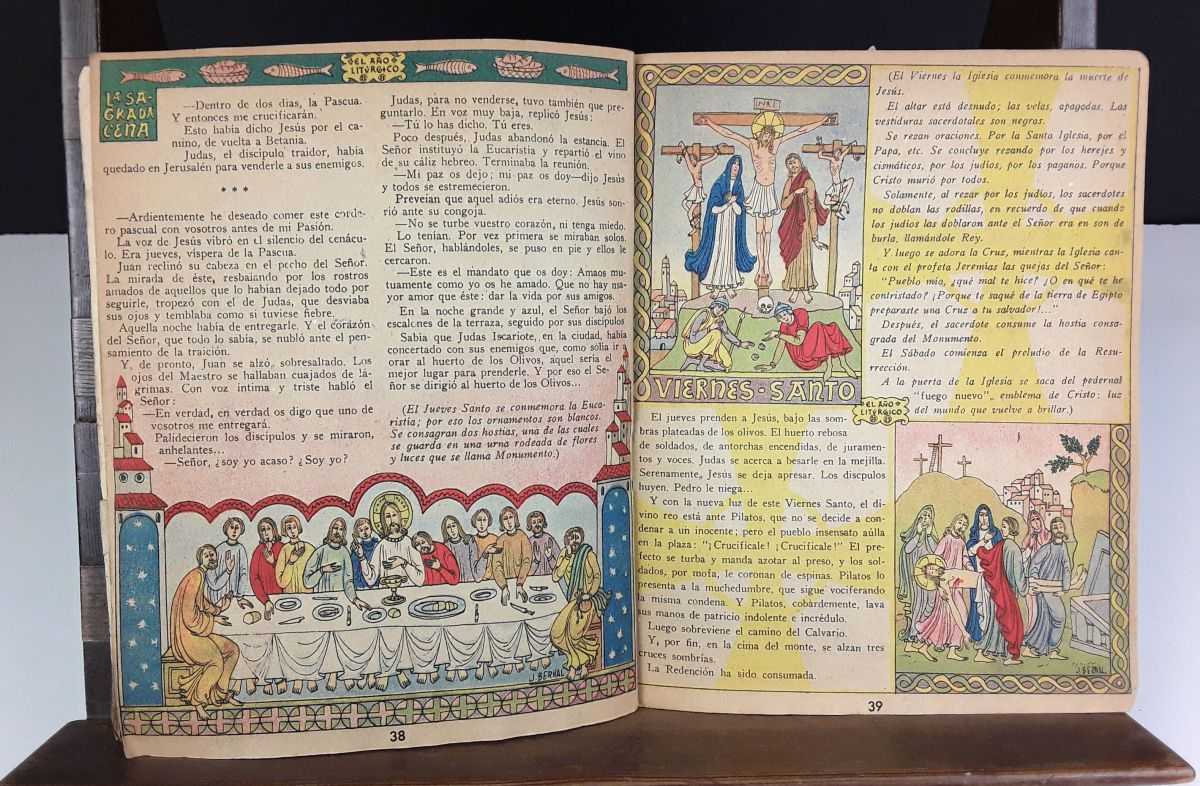 DEL AÑO
LITÚRGICO
LA SA-
GRADA
CENA
—Dentro de dos días, la Pascua.
Y entonces me crucificarán.
Esto había dicho Jesús por el ca-
mino, de vuelta a Betania.
Judas, el discípulo traidor, había
quedado en Jerusalén para venderle a sus enemigos.
* * *
—Ardientemente he deseado comer este corde-
ro pascual con vosotros antes de mi Pasión.
La voz de Jesús vibró en el silencio del cenácu-
lo. Era jueves, víspera de la Pascua.
Juan reclinó su cabeza en el pecho del Señor.
La mirada de éste, resbalando por los rostros
amados de aquellos que lo habían dejado todo por
seguirle, tropezó con el de Judas, que desviaba
sus ojos y temblaba como si tuviese fiebre.
Aquella noche había de entregarle. Y el corazón
del Señor, que todo lo sabía, se nubló ante el pen-
samiento de la traición.
Y, de pronto, Juan se alzó, sobresaltado. Los
ojos del Maestro se hallaban cuajados de lá-
grimas. Con voz íntima y triste habló el
Señor:
—En verdad, en verdad os digo que uno de
vosotros me entregará.
Palidecieron los discípulos y se miraron,
anhelantes...
—Señor, ¿soy yo acaso? ¿Soy yo?
Judas, para no venderse, tuvo también que pre-
guntarlo. En voz muy baja, replicó Jesús:
—Tú lo has dicho. Tú eres.
Poco después, Judas abandonó la estancia. El
Señor instituyó la Eucaristía y repartió el vino
de su cáliz hebreo. Terminaba la reunión.
—Mi paz os dejo; mi paz os doy—dijo Jesús
y todos se estremecieron.
Preveían que aquel adiós era eterno. Jesús son-
rió ante su congoja.
—No se turbe vuestro corazón, ni tenga miedo.
Lo tenían. Por vez primera se miraban solos.
El Señor, hablándoles, se puso en pie y ellos le
cercaron.
—Este es el mandato que os doy: Amaos mu-
tuamente como yo os he amado. Que no hay
mayor amor que éste: dar la vida por sus amigos.
En la noche grande y azul, el Señor bajó los
escalones de la terraza, seguido por sus discípulos
Sabía que Judas Iscariote, en la ciudad, había
concertado con sus enemigos que, como solía ir a
orar al huerto de los Olivos, aquel sería el
mejor lugar para prenderle. Y por eso el Se-
ñor se dirigió al huerto de los Olivos...
(El Jueves Santo se conmemora la Euca-
ristía; por eso los ornamentos son blancos.
Se consagran dos hostias, una de las cuales
se guarda en una urna rodeada de flores
y luces que se llama Monumento.)
J. BERNAL
38
INRI
VIERNES-SANTO
DEL AÑO
LITÚRGICO
El jueves prenden a Jesús, bajo las som-
bras plateadas de los olivos. El huerto rebosa
de soldados, de antorchas encendidas, de juramen-
tos y voces. Judas se acerca a besarle en la mejilla.
Serenamente, Jesús se deja apresar. Los discpulos
huyen. Pedro le niega...
Y con la nueva luz de este Viernes Santo, el di-
vino reo está ante Pilatos, que no se decide a con-
denar a un inocente; pero el pueblo insensato aúlla
en la plaza: "¡Crucifícale! ¡Crucifícale!" El pre-
fecto se turba y manda azotar al preso, y los sol-
dados, por mofa, le coronan de espinas. Pilatos lo
presenta a la muchedumbre, que sigue vociferando
la misma condena. Y Pilatos, cobardemente, lava
sus manos de patricio indolente e incrédulo.
Luego sobreviene el camino del Calvario.
Y, por fin, en la cima del monte, se alzan tres
cruces sombrías.
La Redención ha sido consumada.
(El Viernes la Iglesia conmemora la muerte de
Jesús.
El altar está desnudo; las velas, apagadas. Las
vestiduras sacerdotales son negras.
Se rezan oraciones. Por la Santa Iglesia, por el
Papa, etc. Se concluye rezando por los herejes y
cismáticos, por los judíos, por los paganos. Porque
Cristo murió por todos.
Solamente, al rezar por los judíos, los sacerdotes
no doblan las rodillas, en recuerdo de que cuando
los judíos las doblaron ante el Señor era en son de
burla, llamándole Rey.
Y luego se adora la Cruz, mientras la Iglesia can-
ta con el profeta Jeremías las quejas del Señor:
"Pueblo mío, ¿qué mal te hice? ¿O en qué te he
contristado? ¡Porque te saqué de la tierra de Egipto
preparaste una Cruz a tu salvador!..."
Después, el sacerdote consume la hostia consa-
grada del Monumento.
El Sábado comienza el preludio de la Resu-
rrección.
A la puerta de la Iglesia se saca del pedernal
"fuego nuevo", emblema de Cristo: luz
del mundo que vuelve a brillar.)
J. BERNAL
39